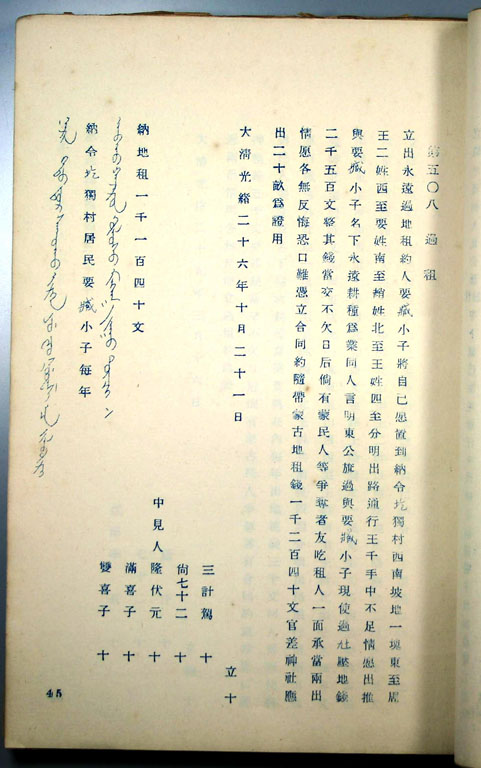 第五〇八 過租
立出永遠過地租約人要臧小子將自己愿置到納令圪獨村西南坡地一塊東至居
王二姓西至要姓南至趙姓北至王姓四至分明出路通行王千手中不足情愿出推
與要臧小子名下永遠耕種爲業同人言明東公旗過與要臧小子現使過壯壓地錢
二千五百文整其錢當交不欠日后倘有蒙民人等爭奪者友吃租人一面承當兩出
情愿各無反悔恐口難憑立合同約隨帶蒙古地租錢一千二百四十文官差神社應
出二十畝爲證用
大淸光緖二十六年十月二十一日
立十
三計駕 十
尙七十二 十
中見人 隆伏元 十
滿喜子 十
雙喜子 十
納地租一千一百四十文
納令圪獨村居民要臧小子每年
45